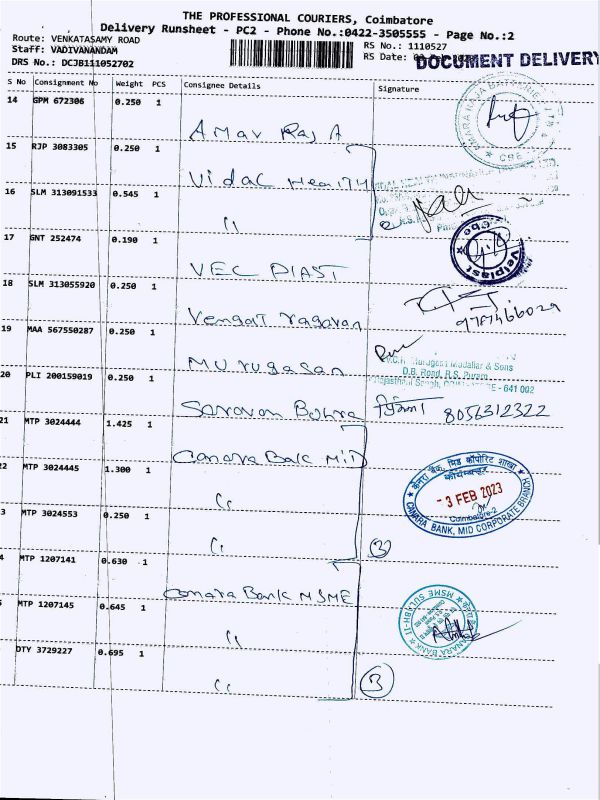 THE PROFESSIONAL COURIERS, Coimbatore
Delivery Runsheet - PC2 - Phone No.:0422-3505555 - Page No.:2
Route: VENKATASAMY ROAD
Staff: VADIVANANDAM
DRS No.: DCJB111052702
RS No.: 1110527
RS Date:
DOCUMENT DELIVERY
S No Consignment No Weight PCS Consignee Details Signature
14 GPM 672306 0.250 1
Amar Raj A
15 RJP 3083305 0.250 1
Vidal Health
16 SLM 313091533 0.545 1
"
17 GNT 252474 0.190 1
VEC PIAST
Velplast
18 SLM 313055920 0.250 1
Vengat ragavan
9787466029
19 MAA 567550287 0.250 1
Murugasan
Murugesa Mudaliar & Sons
D.B. Road, R.S. Puram
- 641 002
20 PLI 200159019 0.250 1
Saravan Bohra
8056312322
21 MTP 3024444 1.425 1
Canara Bak MID
2 MTP 3024445 1.300 1
"
केनरा बैंक, मिड कॉर्पोरेट शाखा
कोयम्बत्तूर
- 3 FEB 2023
Coimbatore-2
CANARA BANK, MID CORPORATE BRANCH
3 MTP 3024553 0.250 1
"
3
4 MTP 1207141 0.630 1
Canara Bank MSME
5 MTP 1207145 0.645 1
"
CANARA BANK
MSME SULABH-II
DTY 3729227 0.695 1
"
3